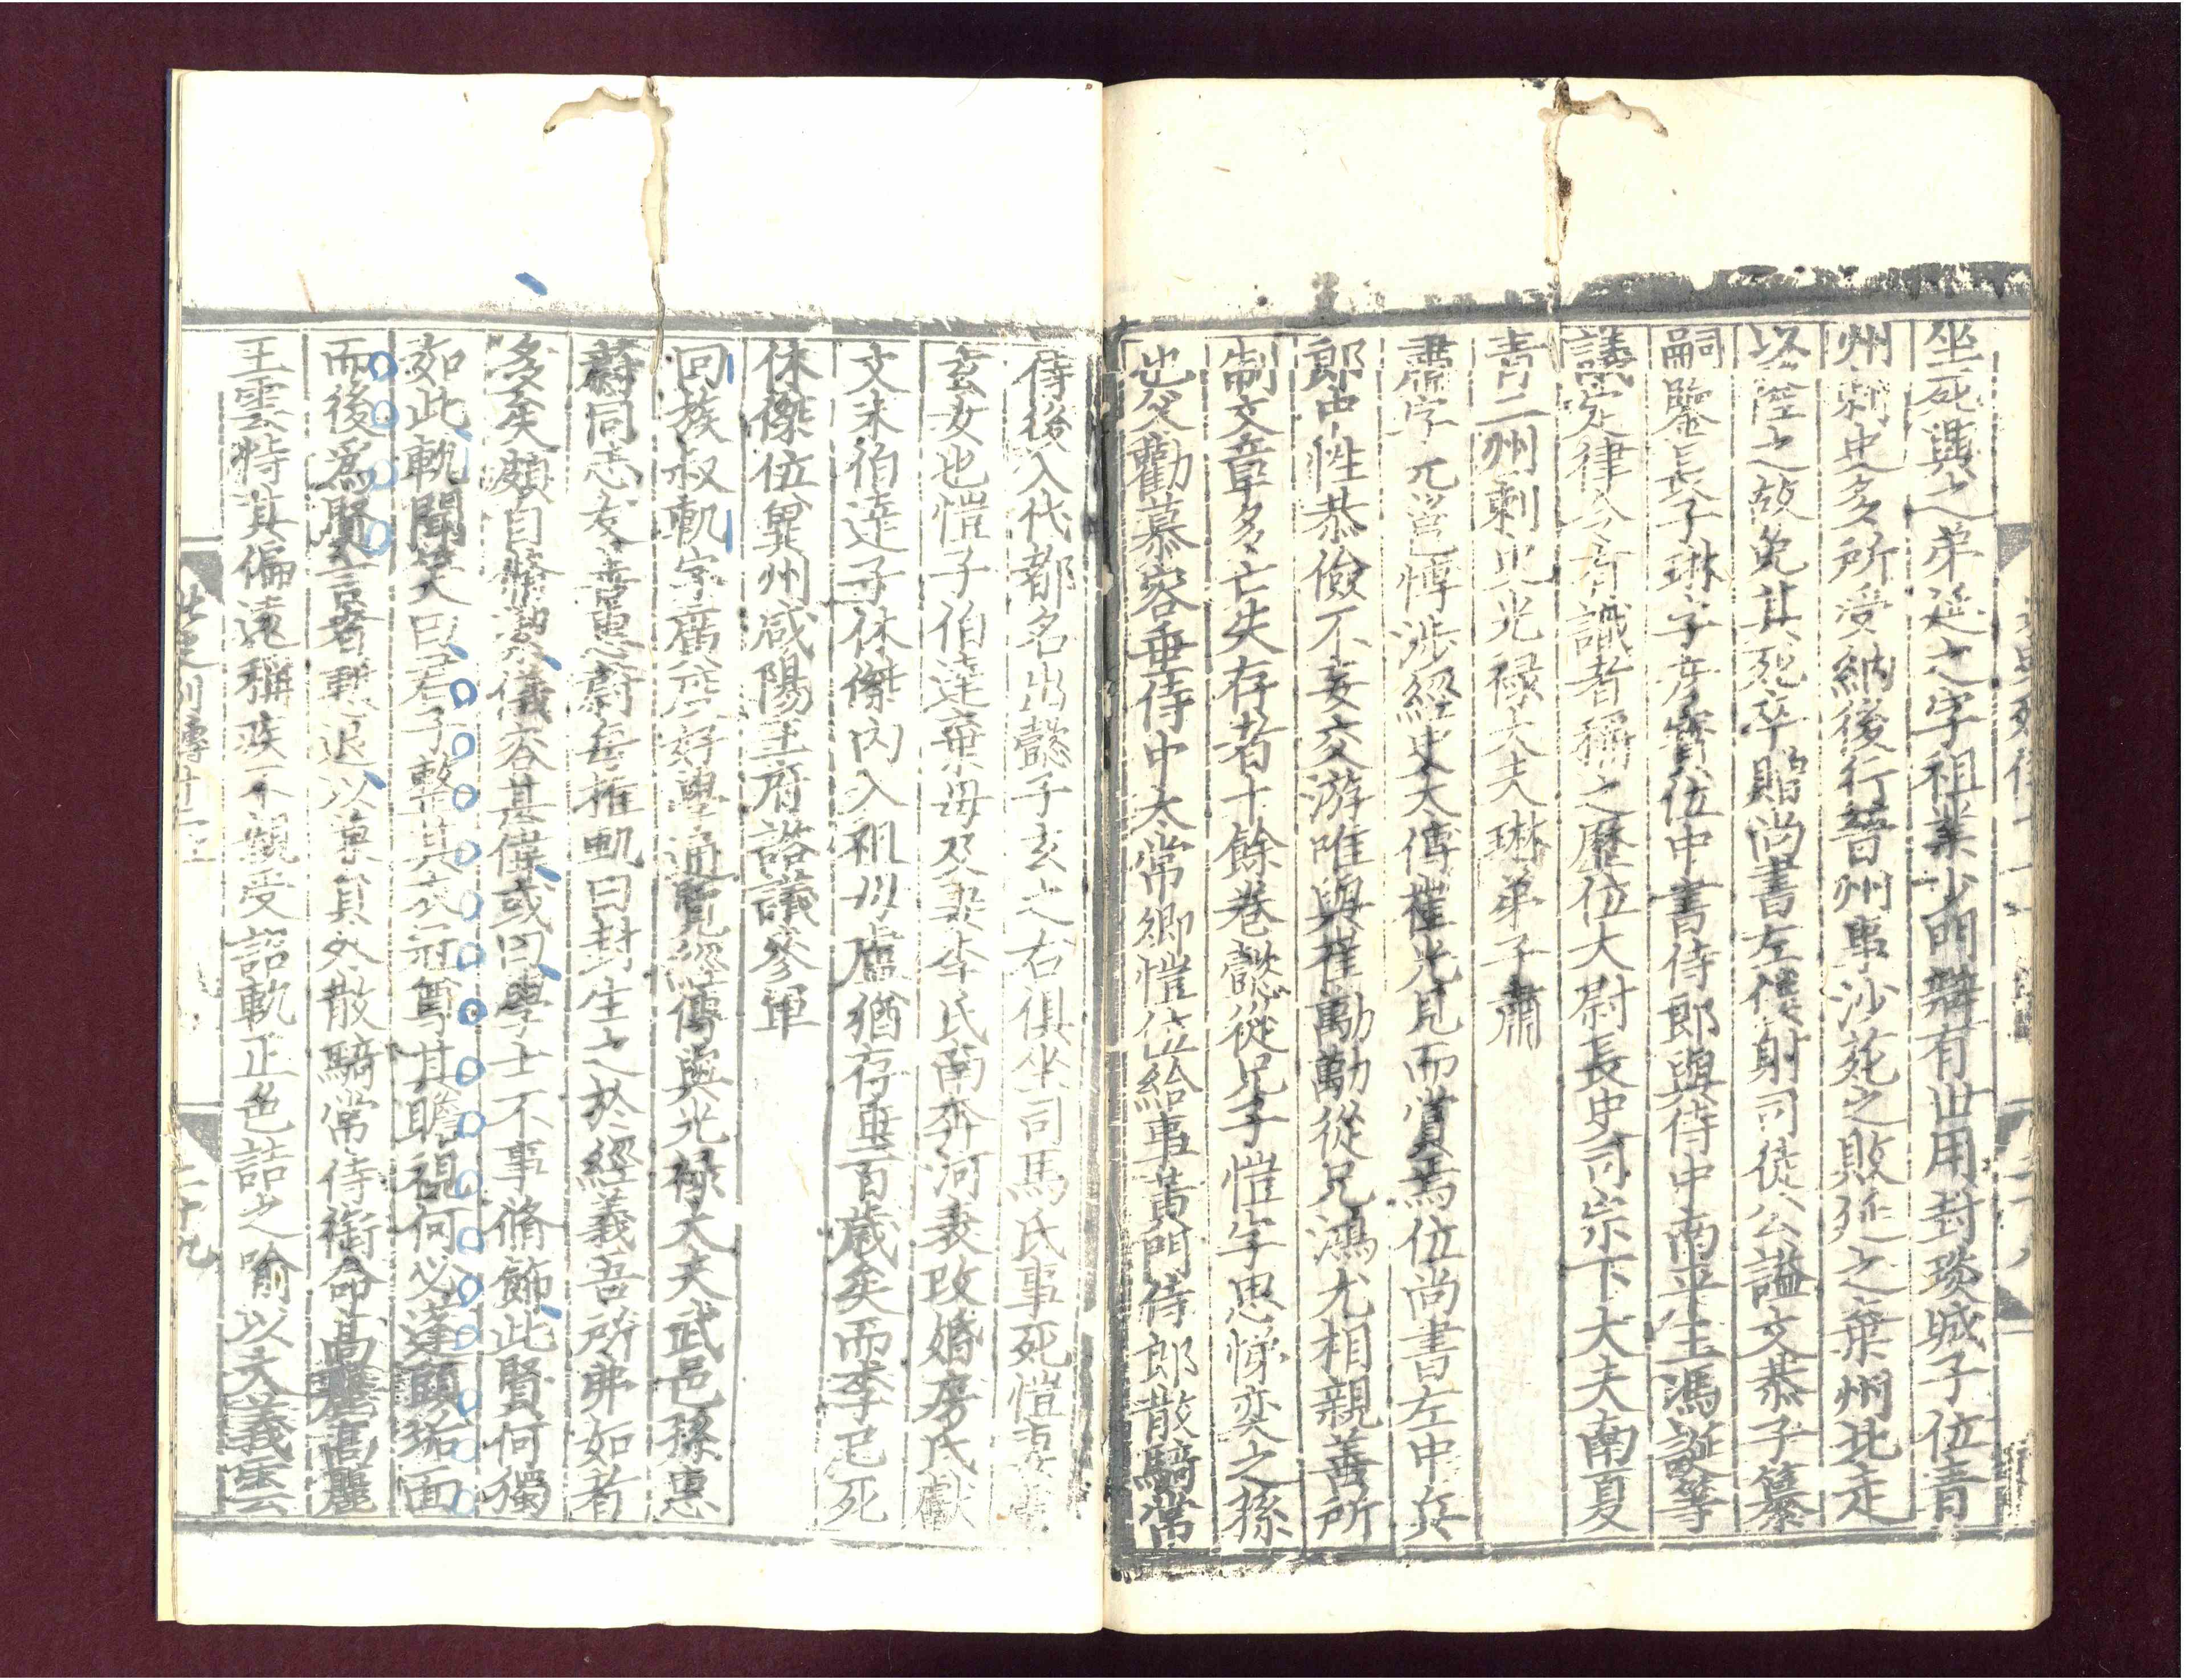 坐死興之弟延之字祖業少明辯有世用封琰城子位青
州刺史多所受納後行晉州事沙苑之敗延之棄州北走
以陛之故免其死卒贈尚書左僕射司徒公謚文恭子纂
嗣鑒長子琳字彦寶位中書侍郎與侍中南平王馮誕等
議定律令有識者稱之歷位太尉長史司宗下大夫南夏
青二州刺史光禄大夫琳弟子肅
肅字元邕博涉經史太傅崔光見而賞焉位尚書左中兵
郎中性恭儉不妄交游唯與崔勵勵從兄鴻尤相親善所
制文章多亡失存者十餘卷懿從兄子愷字思悌奕之孫
也父勸慕容垂侍中太常卿愷位給事黄門侍郎散騎常
侍後入代都名出懿子玄之右俱坐司馬氏事死愷妻
玄女也愷子伯達棄母及妻李氏南奔河表改婚房氏獻
文末伯達子休傑内入祖母盧猶存垂百歲矣而李已死
休傑位冀州咸陽王府諮議參軍
回族叔軌字廣度好學通覽經傳與光禄大夫武邑孫惠
蔚同志友善惠蔚每推軌曰封生之於經義吾所弗如者
多矣頗自修潔儀容甚偉或曰學士不事脩飾此賢何獨
如此軌聞笑曰君子整其衣冠尊其瞻視何必蓬頭垢面
而後爲賢言者慙退以兼員外散騎常侍銜命高麗高麗
王雲恃其偏遠稱疾不親受詔軌正色詰之喻以大義雲
北史列傳十二
二十九